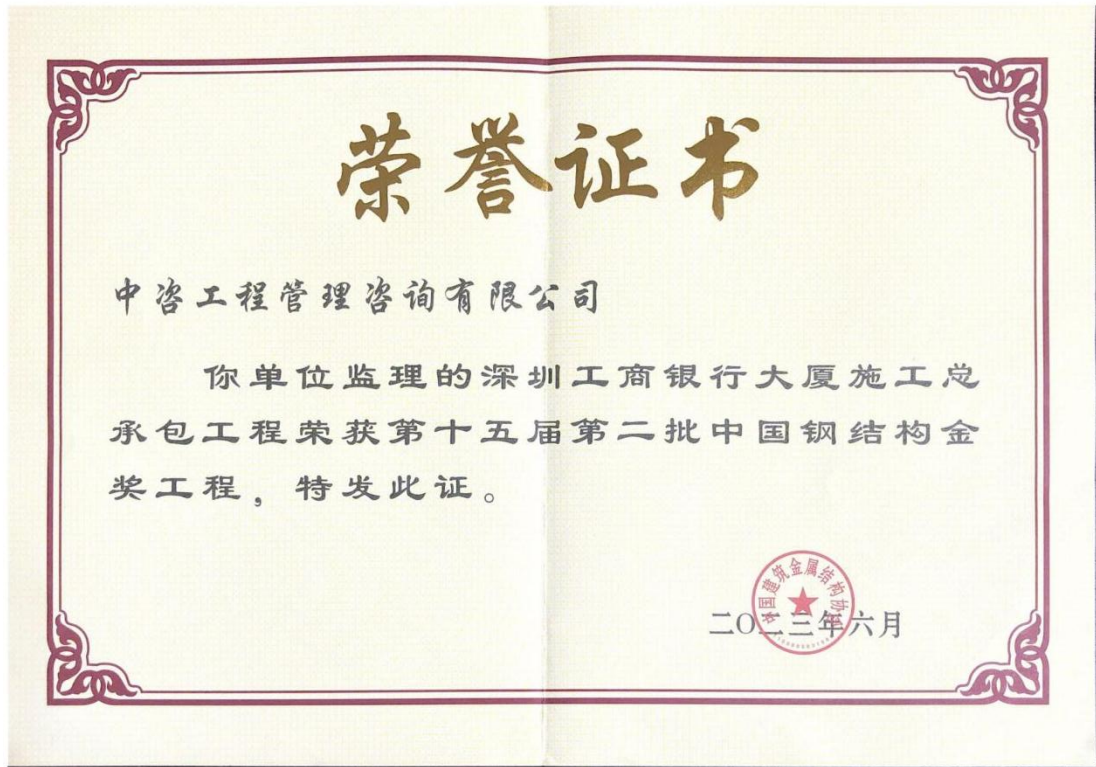 荣誉证书
中咨工程管理咨询有限公司
你单位监理的深圳工商银行大厦施工总
承包工程荣获第十五届第二批中国钢结构金
奖工程，特发此证。
中国建筑金属结构协会
二〇二三年六月